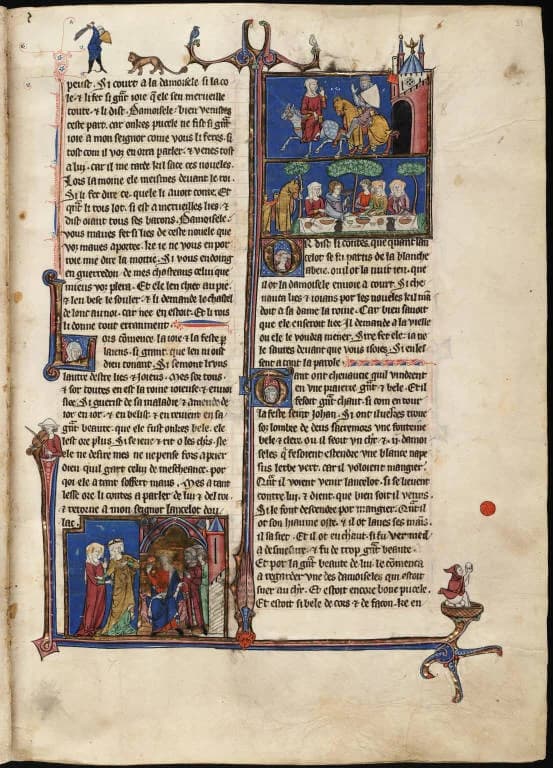 peust. Si court a la damoisele si la co
le ⁊ li fet si grant ioie q̃ ele sen merueille
toute. ⁊ li dist. Damoisele bien veniffes
ceste part. car onkes pucele ne fist si grant
ioie a mon seignor come vous li feres. si
tost com il vos en orra parler. ⁊ venes tost
a lui. car il me tarde kil sace ces noueles.
Lors la moine ele meismes deuant le roi.
Si li fet dire ce quele li auoit conte. Et
quant li rois lot. si est a merueilles lies. ⁊
dist oiant tous ses barons. Damoisele.
vous maues fet si lie de ceste nouele que
vos maues aportee. ke ie ne vous en por
roie mie dire la moitie. Si vous en doing
en guerredon de mes chasteaus celui que
miens vos plera. Et ele len chiet au pie.
⁊ len bese le souler. ⁊ li demande le chastel
de
car nee en estoit. Et li rois
li donne tout erranment.
Lors comence la ioie ⁊ la feste p
laiens. si grant. que len ni oist
dieu tonant. Si semont li vns
lautre destre lies ⁊ ioieus. Mes sor tous
⁊ sor toutes en est la roine ioieuse. ⁊ enuoi
sie. Si guerist de sa maladie ⁊ amende de
ior en ior. ⁊ en belist. ⁊ en reuient en sa
grant biaute. que ele fust onkes bele. ele
lest ore plus. Si se ieue ⁊ rit o les
ele ne desire mes ne ne pense fors a prier
dieu quil gart celui de mescheance. por
qoi ele a tant soffert maus. Mes a tant
lesse ore li contes a parler de lui ⁊ del roi.
⁊ retorne a mon seignor lancelot dou
lac.
Or dist li contes. que quant lan
celot se fu partis de la blanche
abeie. ou il ot la nuit ieu. que
il ot la damoisele enuoie a court. Si che
uaucha lies ⁊ ioians por les noueles kil
a dit a sa dame la roine. Car bien sauoit
que ele en seroit liee. Il demande a la vielle
ou ele le voudra mener. Sire fet ele. ia ne
le saures deuant que vous
Si en les
sent a tant la parole.
Tant ont cheuauchie quil vindrent
en vne praierie grant ⁊ bele. Et il
fesoit grant chaut. si com en tour
la feste seint Johan. Si ont iluekes troue
sor lombre de deus sicamors vne fonteine
bele ⁊ clere. ou il seoit
damoi
seles. q̃ fesoient estendre vne blanche nape
sus lerbe vert. car il voloient mangier.
Quant il voient venir lancelot. si se lieuent
contre lui. ⁊ dient. que bien soit il venus.
Si le font descendre por mangier. Quant il
ot son hiaume oste. ⁊ il ot laues ses mains.
il sa siet. Et il ot eu chaut. si fu vermeil
a desmesure. ⁊ fu de trop grant beaute.
Et por la grant beaute de lui le comença
a regarder vne des damoiseles qui estoit
suer au
Et estoit encore bone pucele.
Et estoit si bele de cors ⁊ de façon. ke en